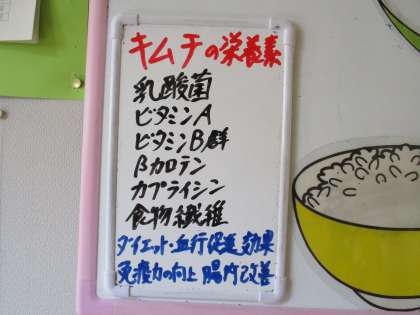 キムチの栄養素
乳酸菌
ビタミンA
ビタミンB群
βカロテン
カプライシン
食物繊維
ダイエット・血行促進効果
免疫力の向上 腸内改善